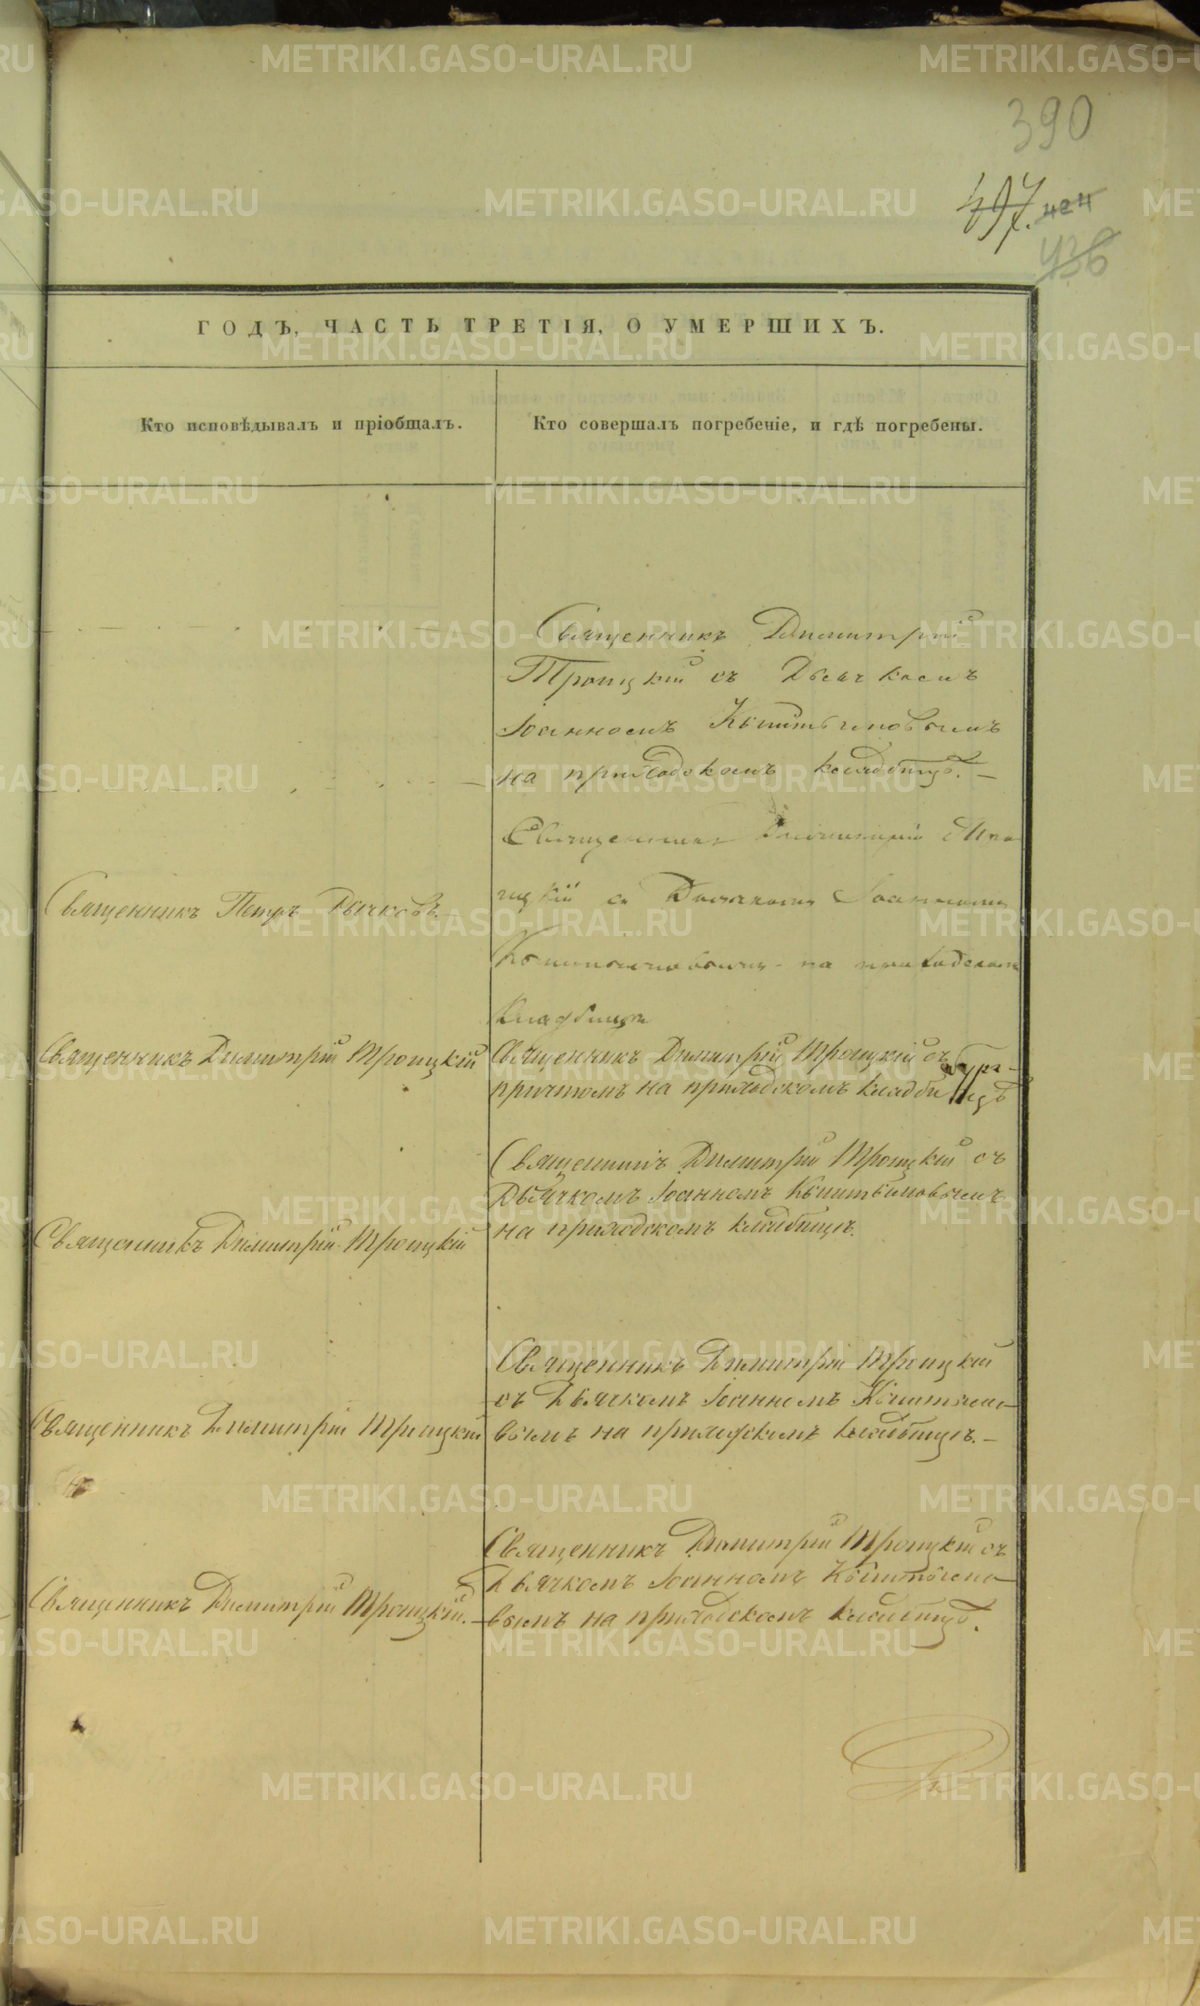 390
497. 424
436
ГОДЪ, ЧАСТЬ ТРЕТІЯ, О УМЕРШИХЪ.
Кто исповѣдывалъ и пріобщалъ.
Кто совершалъ погребеніе, и гдѣ погребены.
Священникъ Димитрій
Троицкій съ Дьячкомъ
Іоанномъ
на приходскомъ кладбищѣ.
Священникъ Петръ Рычковъ.
Священникъ Димитрій Трои
цкій съ Дьячкомъ Іоанномъ
на приходскомъ
кладбищѣ
Священникъ Димитрій Троицкій
Священникъ Димитрій Троицкій съ
причтомъ на приходскомъ кладбищѣ
Священникъ Димитрій Троицкій
Священникъ Димитрій Троицкій съ
Дьячкомъ Іоанномъ
на приходскомъ кладбищѣ.
Священникъ Димитрій Троицкій
Священникъ Димитрій Троицкій
съ Дьячкомъ Іоанномъ
вымъ на приходскомъ кладбищѣ.
Священникъ Димитрій Троицкій.
Священникъ Димитрій Троицкій съ
Дьячкомъ Іоанномъ
вымъ на приходскомъ кладбищѣ.
METRIKI.GASO-URAL.RU